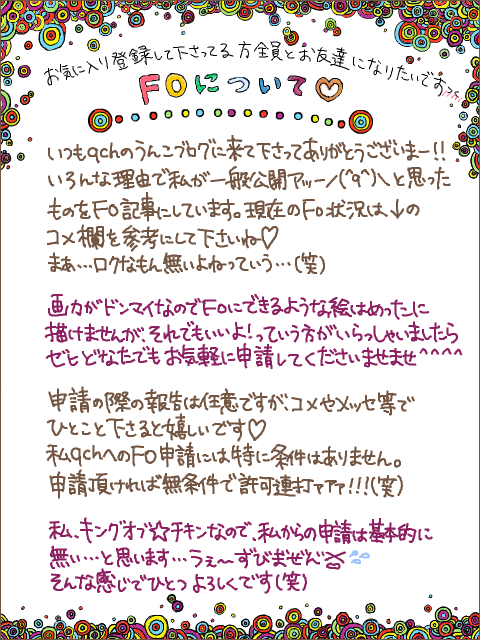 お気に入り登録して下さってる方全員とお友達になりたいでおっ!!
FOについて♡
いつもqchのうんこブログに来て下さってありがとうございまー!!
いろんな理由で私が一般公開アッー/(^q^)\と思った
ものをFO記事にしています。現在のFO状況は、↓の
コメ欄を参考にして下さいね♡
まぁ…ロクなもん無いよねっていう…(笑)
画力がドンマイなのでFOにできるような絵はめったに
描けませんが、それでもいいよ!っていう方がいらっしゃいましたら
ゼヒどなたでもお気軽に申請してくださいませませ^^^^
申請の際の報告は任意ですが、コメやメッセ等で
ひとこと下さると嬉しいです♡
私qchへのFO申請には特に条件はありません。
申請頂ければ無条件で許可連打ァァァ!!!(笑)
私、キングオブ☆チキンなので、私からの申請は基本的に
無い…と思います…うぇ〜ずびまぜん
そんな感じでひとつよろしくです(笑)